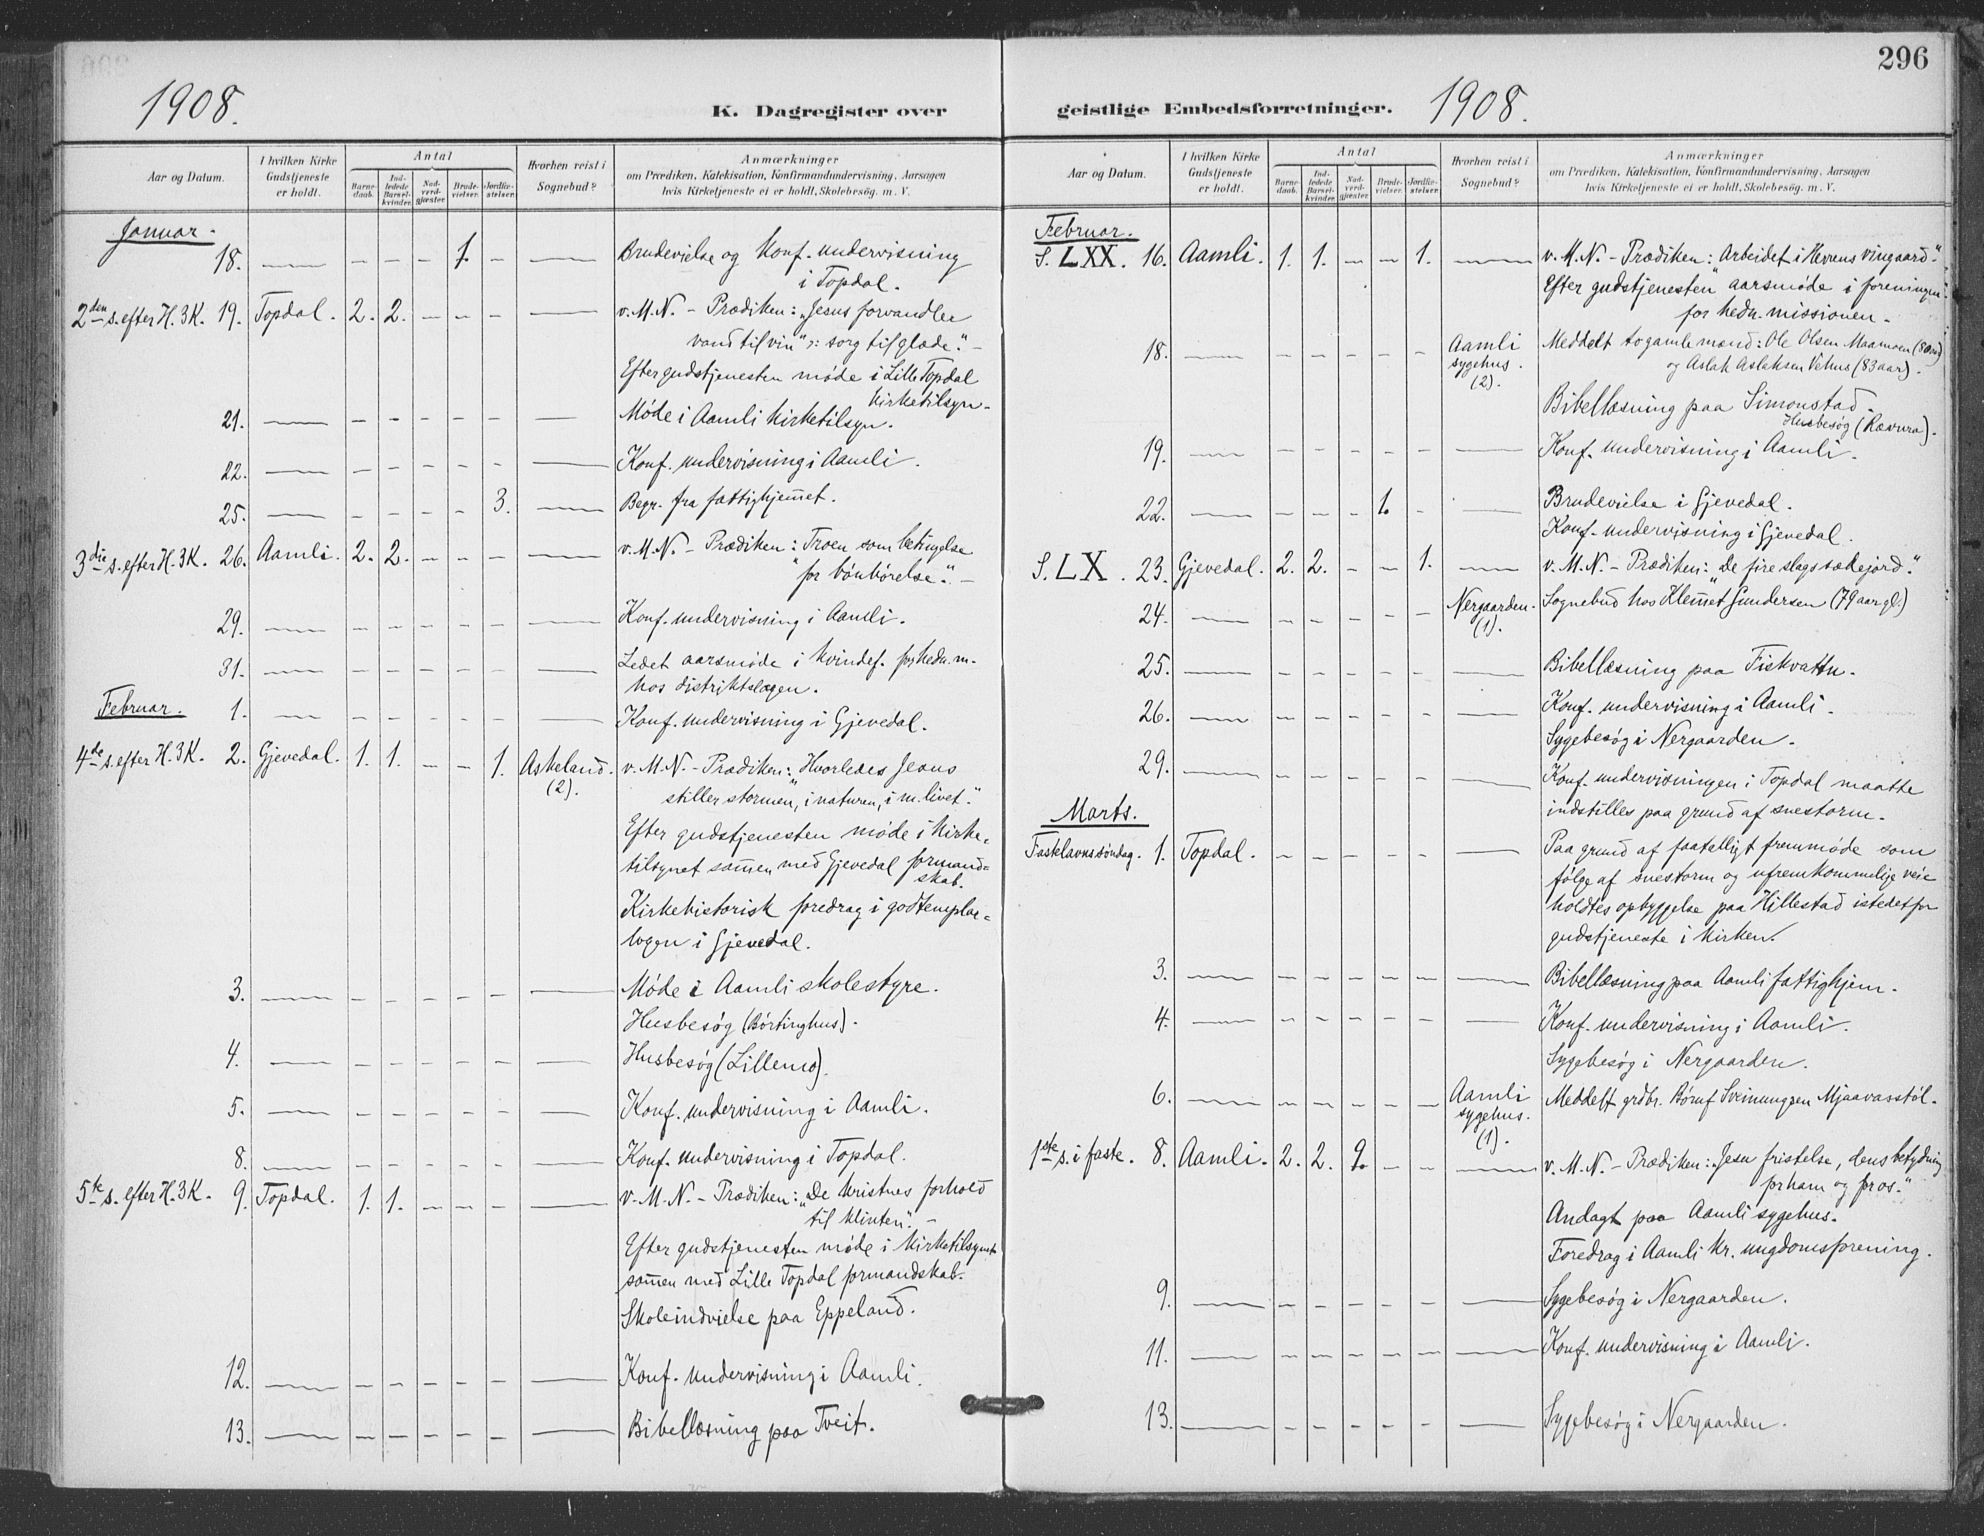 1908.
K. Dagregister over
Aar og Datum.
I hvilken Kirke Gudstjeneste er holdt.
Antal
Barnedaab.
Indledede Barselkvinder.
Nadverdgjæster.
Brudevielser.
Jordfæstelser.
Hvorhen reist i Sognebud?
Anmærkninger
om Prædiken, Katekisation, Konfirmandundervisning, Aarsagen
hvis Kirketjeneste ei er holdt, Skolebesøg. m. V.
Januar.
18. — — — — 1. — — Brudevielse og Konf. undervisning
i Topdal.
2den s. efter H. 3 K. 19. Topdal. 2. 2. — — — — v. M. N. – Prædiken: „Jesus forvandler
vand til vin" ɔ: sorg til glæde." –
Efter gudstjenesten møde i Lille Topdal
kirketilsyn.
21. — — — — — — — Møde i Aamli kirketilsyn.
22. — — — — — — — Konf. undervisning i Aamli.
25. — — — — — 3. — Begr. fra fattighjem̅et.
3die s. efter H. 3 K. 26. Aamli. 2. 2. — — — — v. M. N. – Prædiken: Troen som betingelse
"for bönhörelse." –
29. — — — — — — — Konf. undervisning i Aamli.
31. — — — — — — — Ledet aarsmøde i kvindef. for hedn. m.
hos distriktslægen.
Februar. 1. — — — — — — — Konf. undervisning i Gjevedal.
4de s. efter H. 3 K. 2. Gjevedal. 1. 1. — — 1. Askeland. v. M. N. – Prædiken: „Hvorledes Jesus
(2). stiller stormen", i naturen, i m. livet."
Efter gudstjenesten møde i kirke=
tilsynet sam̅en med Gjevedal formand=
skab.
Kirkehistorisk foredrag i godtemplar=
logen i Gjevedal.
3. — — — — — — — Møde i Aamli skolestyre.
Husbesøg (Börtinghus).
4. — — — — — — — Husbesøg (Lillemo).
5. — — — — — — — Konf. undervisning i Aamli.
8. — — — — — — — Konf. undervisning i Topdal.
5te s. efter H. 3 K. 9. Topdal. 1. 1. — — — — v. M. N. – Prædiken: „De kristnes forhold
til klinten". –
Efter gudstjenesten møde i kirketilsynet
sam̅en med Lille Topdal formandskab.
Skoleindvielse paa Eppeland.
12. — — — — — — — Konf. undervisning i Aamli.
13. — — — — — — — Bibellæsning paa Tveit.
296
geistlige Embedsforretninger.
1908.
Aar og Datum.
I hvilken Kirke Gudstjeneste er holdt.
Antal
Barnedaab.
Indledede Barselkvinder.
Nadverdgjæster.
Brudevielser.
Jordfæstelser.
Hvorhen reist i Sognebud?
Anmærkninger
om Prædiken, Katekisation, Konfirmandundervisning, Aarsagen
hvis Kirketjeneste ei er holdt, Skolebesøg. m. V.
Februar.
S. LXX. 16. Aamli. 1. 1. — — 1. — v. M. N. – Prædiken: Arbeidet i Herrens vingaard."
Efter gudstjenesten „aarsmøde i foreningen"
for hedn. missionen.
18. — — — — — — Aamli Meddelt to gamle mænd: Ole Olsen Maamoen (80 aar)
sygehus. og Aslak Aslaksen Vehus (83 aar).
(2).
Bibellæsning paa Simonstad.
Husbesøg (Rævura).
19. — — — — — — — Konf. undervisning i Aamli.
22. — — — — 1. — — Brudevielse i Gjevedal.
Konf. undervisning i Gjevedal.
S. LX. 23. Gjevedal. 2. 2. — — 1. — v. M. N. – Prædiken: „De fire slags sædejord."
24. — — — — — — Nergaarden. Sognebud hos Klem̅et Gundersen (79 aar gl.)
(1).
25. — — — — — — — Bibellæsning paa Fiskvattn.
26. — — — — — — — Konf. undervisning i Aamli.
Sygebesøg i Nergaarden.
29. — — — — — — — Konf. undervisningen i Topdal maatte
indstilles paa grund af snestorm.
Marts.
Fastelavnssøndag. 1. Topdal. — — — — — — Paa grund af faatalligt fremmøde som
følge af snestorm og ufremkommelige veie
holdtes opbyggelse paa Hillestad istedetfor
gudstjeneste i kirken.
3. — — — — — — — Bibellæsning paa Aamli fattighjem.
4. — — — — — — — Konf. undervisning i Aamli.
Sygebesøg i Nergaarden.
6. — — — — — — Aamli Meddelt grdbr. Böruf Sveinungsen Mjaavasstöl.
sygehus.
(1).
1ste s. i faste. 8. Aamli. 2. 2. 9. — — — v. M. N. – Prædiken: „Jesu fristelse, dens betydning
for ham og for os."
Andagt paa Aamli sygehus.
Foredrag i Aamli kr. ungdomsforening.
9. — — — — — — — Sygebesøg i Nergaarden.
11. — — — — — — — Konf. undervisning i Aamli.
13. — — — — — — — Sygebesøg i Nergaarden.